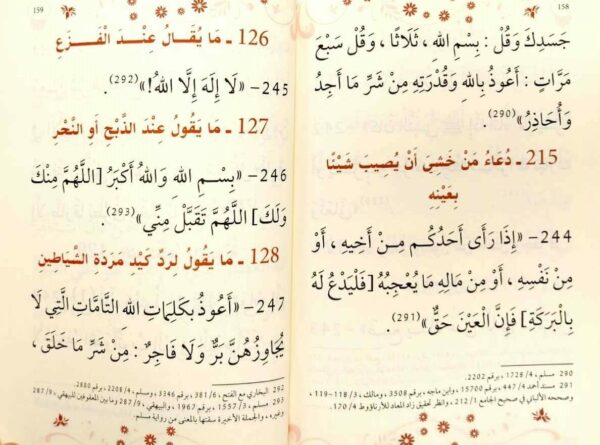 158
جَسَدِكَ وَقُلْ : بِسْمِ اللهِ ، ثَلَاثًا ، وَقُلْ سَبْعَ
مَرَّاتٍ : أَعُوذُ بِاللهِ وَقُدْرَتِهِ مِنْ شَرِّ مَا أَجِدُ
وَأُحَاذِرُ»(290).
215 ـ دُعَاءُ مَنْ خَشِيَ أَنْ يُصِيبَ شَيْئًا
بِعَيْنِهِ
244 – «إِذَا رَأَى أَحَدُكُم مِـنْ أَخِيهِ ، أَوْ
مِنْ نَفْسِهِ ، أَوْ مِنْ مَالِهِ مَا يُعْجِبُهُ [فَلْيَدْعُ لَهُ
بِالْبَرَكَةِ] فَإِنَّ الْعَيْنَ حَقٌّ»(291).
290 مسلم ، 4/ 1728 ، برقم 2202.
291 مسند أحمد 4/ 447 برقم 15700 وابن ماجه ، برقم 3508 ، ومالك ، 3/ 118–119 ،
وصححه الألباني في صحيح الجامع 1/ 212 ، وانظر تحقيق زاد المعاد للأرناؤوط 4/ 170.
159
126 ـ مَا يُقَـالُ عِنْـدَ الْفَـزَعِ
245– «لَا إِلَهَ إِلَّا اللهُ!»(292).
127 ـ مَا يَقُولُ عِنْدَ الذَّبْحِ أَوِ النَّحْرِ
246 – «بِسْـمِ اللهِ وَاللهُ أَكْبَرُ [اللَّهُمَّ مِنْكَ
وَلَكَ] اللَّهُمَّ تَقَبَّلْ مِنِّي»(293).
128 ـ مَا يَقُولُ لِرَدِّ كَيْدِ مَرَدَةِ الشَّيَاطِينِ
247– «أَعُوذُ بِكَلِمَاتِ اللهِ التَّامَّاتِ الَّتِي لَا
يُجَاوِزُهُنَّ بَرٌّ وَلَا فَاجِرٌ: مِنْ شَرِّ مَا خَلَقَ ،
292 البخاري مع الفتح ، 6/ 381 ، برقم 3346 ، ومسلم ، 4/ 2208 ، برقم 2880.
293 مسلم ، 3/ 1557 ، برقم 1967 ، والبيهقي ، 9/ 287 وما بين المعقوفين للبيهقي ، 9/ 287
وغيره ، والجملة الأخيرة سقتها بالمعنى من رواية مسلم.